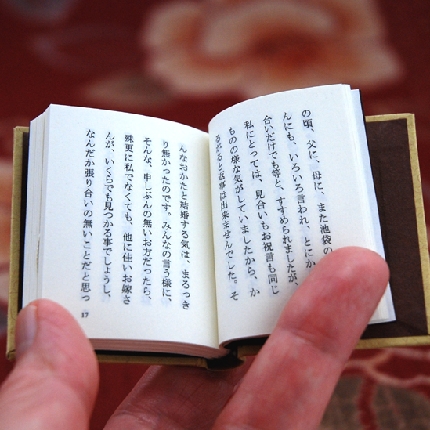 の頃、父に、母に、また池袋の
んにも、いろいろ言われ、とにか
合いだけでも等と、すすめられましたが、
私にとっては、見合いもお祝言も同じ
ものの様な気がしていましたから、か
るがると返事は出来ませんでした。そ
んなおかたと結婚する気は、まるっき
り無かったのです。みんなの言う様に、
そんな、申しぶんの無いお方だったら、
殊更に私でなくても、他に佳いお嫁さ
んが、いくらでも見つかる事でしょうし、
なんだか張り合いの無いことだと思っ
17